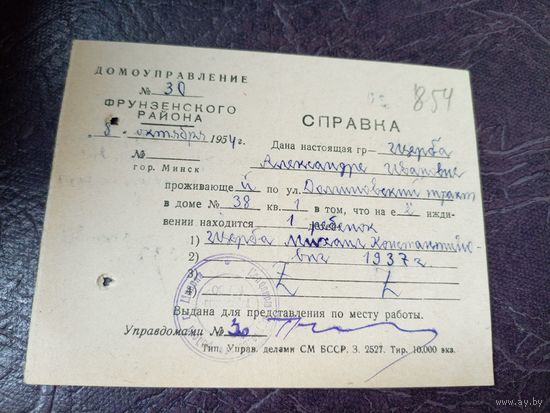 854
ДОМОУПРАВЛЕНИЕ
№ 30
ФРУНЗЕНСКОГО
РАЙОНА
8. октября 1954 г.
№
гор. Минск
СПРАВКА
Дана настоящая гр– Щерба
Александре Ивановне
проживающей по ул. Долгиновский тракт
в доме № 38 кв. 1 в том, что на её ижди-
вении находится 1 ребенок
1) Щерба Михаил Константино-
2) вич 1937 г
3) Z Z
4)
Выдана для представления по месту работы.
Управдомами № 30
Тип. Управ. делами СМ БССР. З. 2527. Тир. 10.000 экз.
www.ay.by